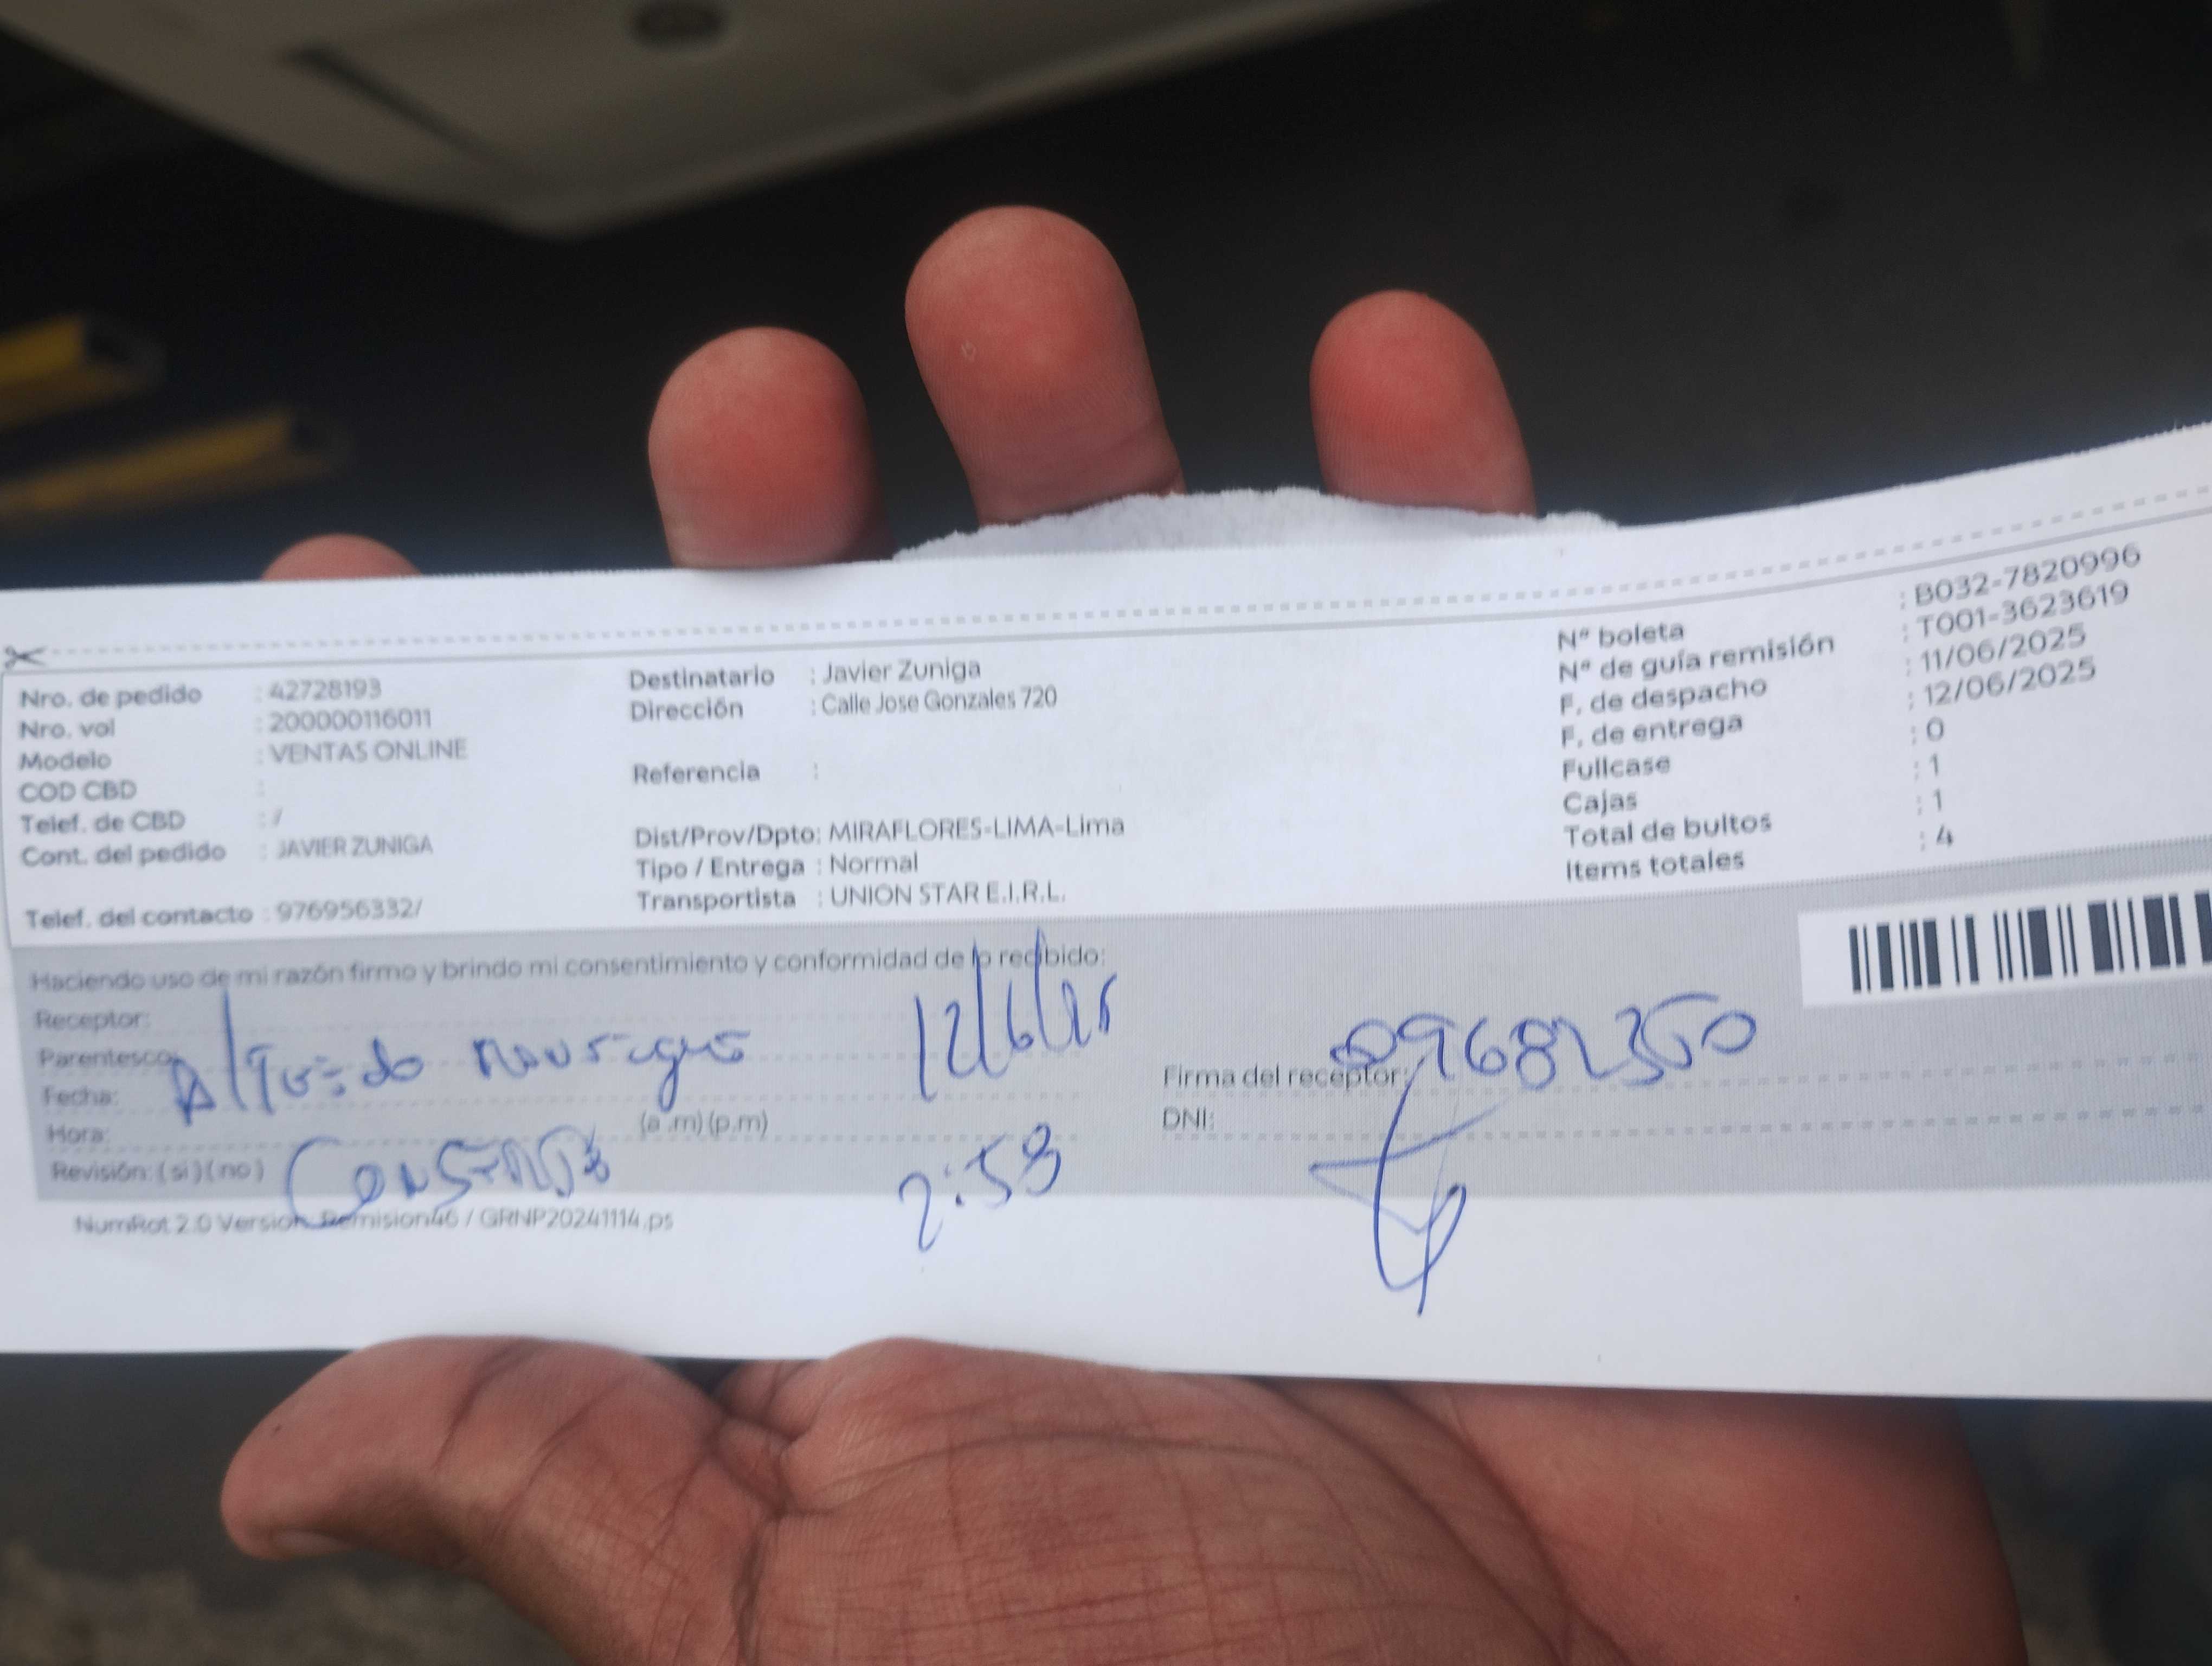 Nro. de pedido : 42728193
Nro. vol : 200000116011
Modelo : VENTAS ONLINE
COD CBD :
Telef. de CBD : /
Cont. del pedido : JAVIER ZUNIGA
Telef. del contacto : 976956332/
Destinatario : Javier Zuniga
Dirección : Calle Jose Gonzales 720
Referencia :
Dist/Prov/Dpto: MIRAFLORES-LIMA-Lima
Tipo / Entrega : Normal
Transportista : UNION STAR E.I.R.L.
N° boleta : B032-7820996
N° de guía remisión : T001-3623619
F. de despacho : 11/06/2025
F. de entrega : 12/06/2025
Fullcase : 0
Cajas : 1
Total de bultos : 1
Items totales : 4
Haciendo uso de mi razón firmo y brindo mi consentimiento y conformidad de lo recibido:
Receptor:
Parentesco:
Fecha: 12/6/25
Hora: (a .m) (p.m) 2:59
Revisión: (si) (no)
Firma del receptor:
DNI:
NumRot 2.0 Version. Remision46 / GRNP20241114.ps